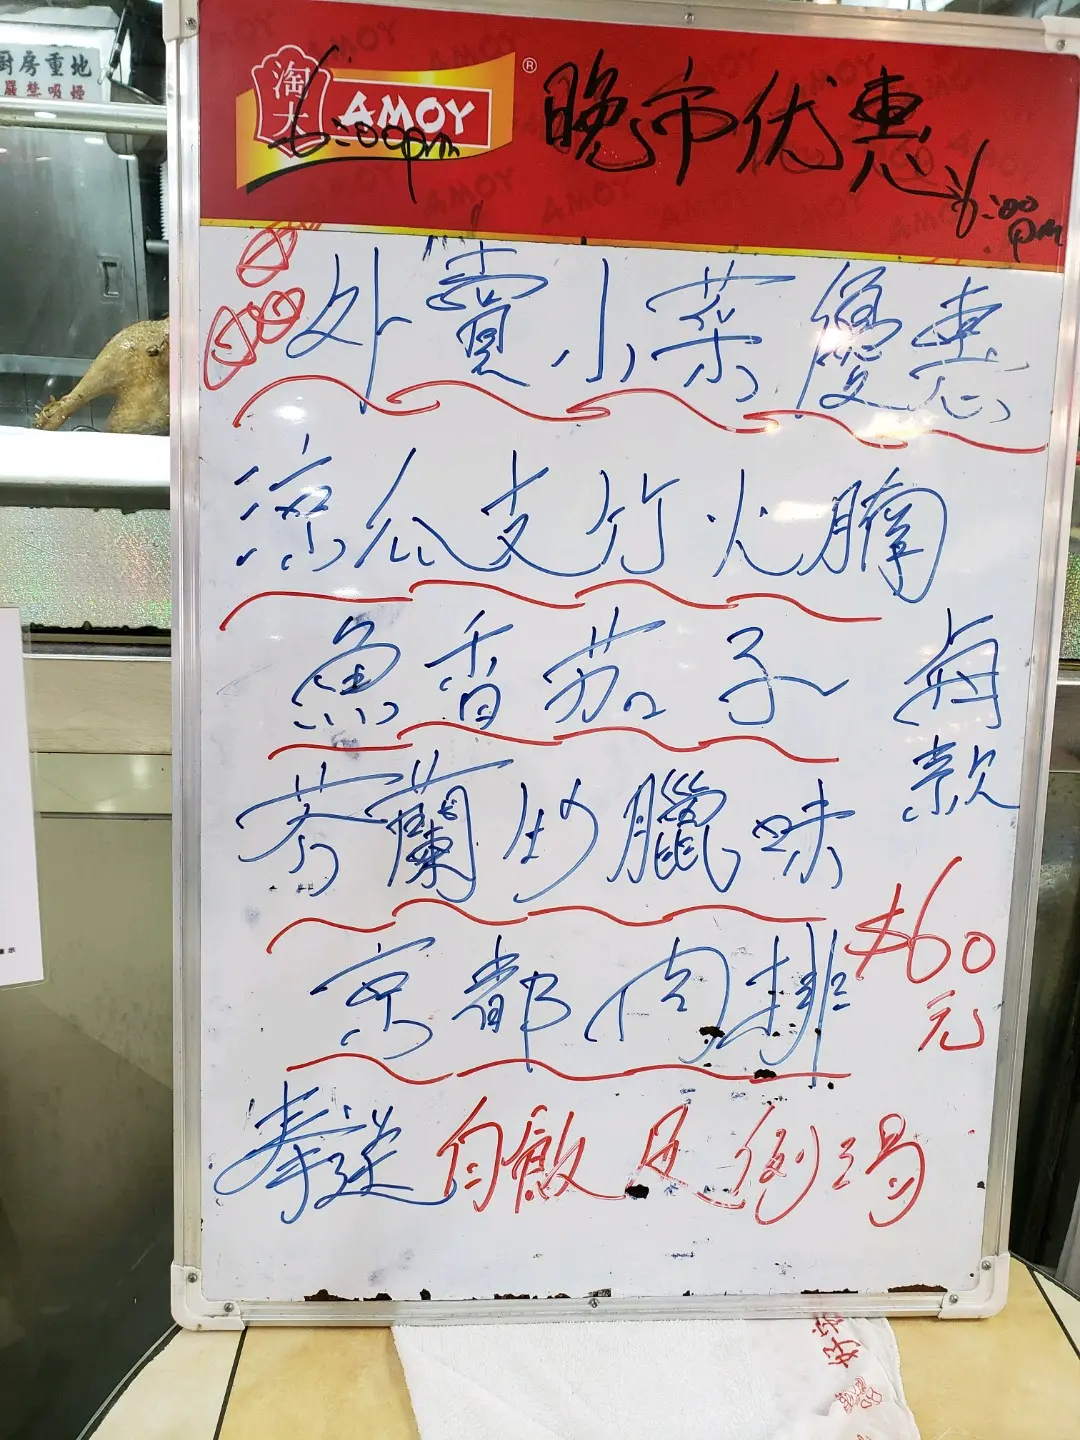 廚房重地
嚴禁吸煙
淘大
AMOY
®
晚市优惠
6:00pm
6:00pm
外賣小菜優惠
凉瓜支竹火腩
魚香茄子
芥蘭炒臘味
京都肉排
每款
$60元
奉送 白飯及例湯